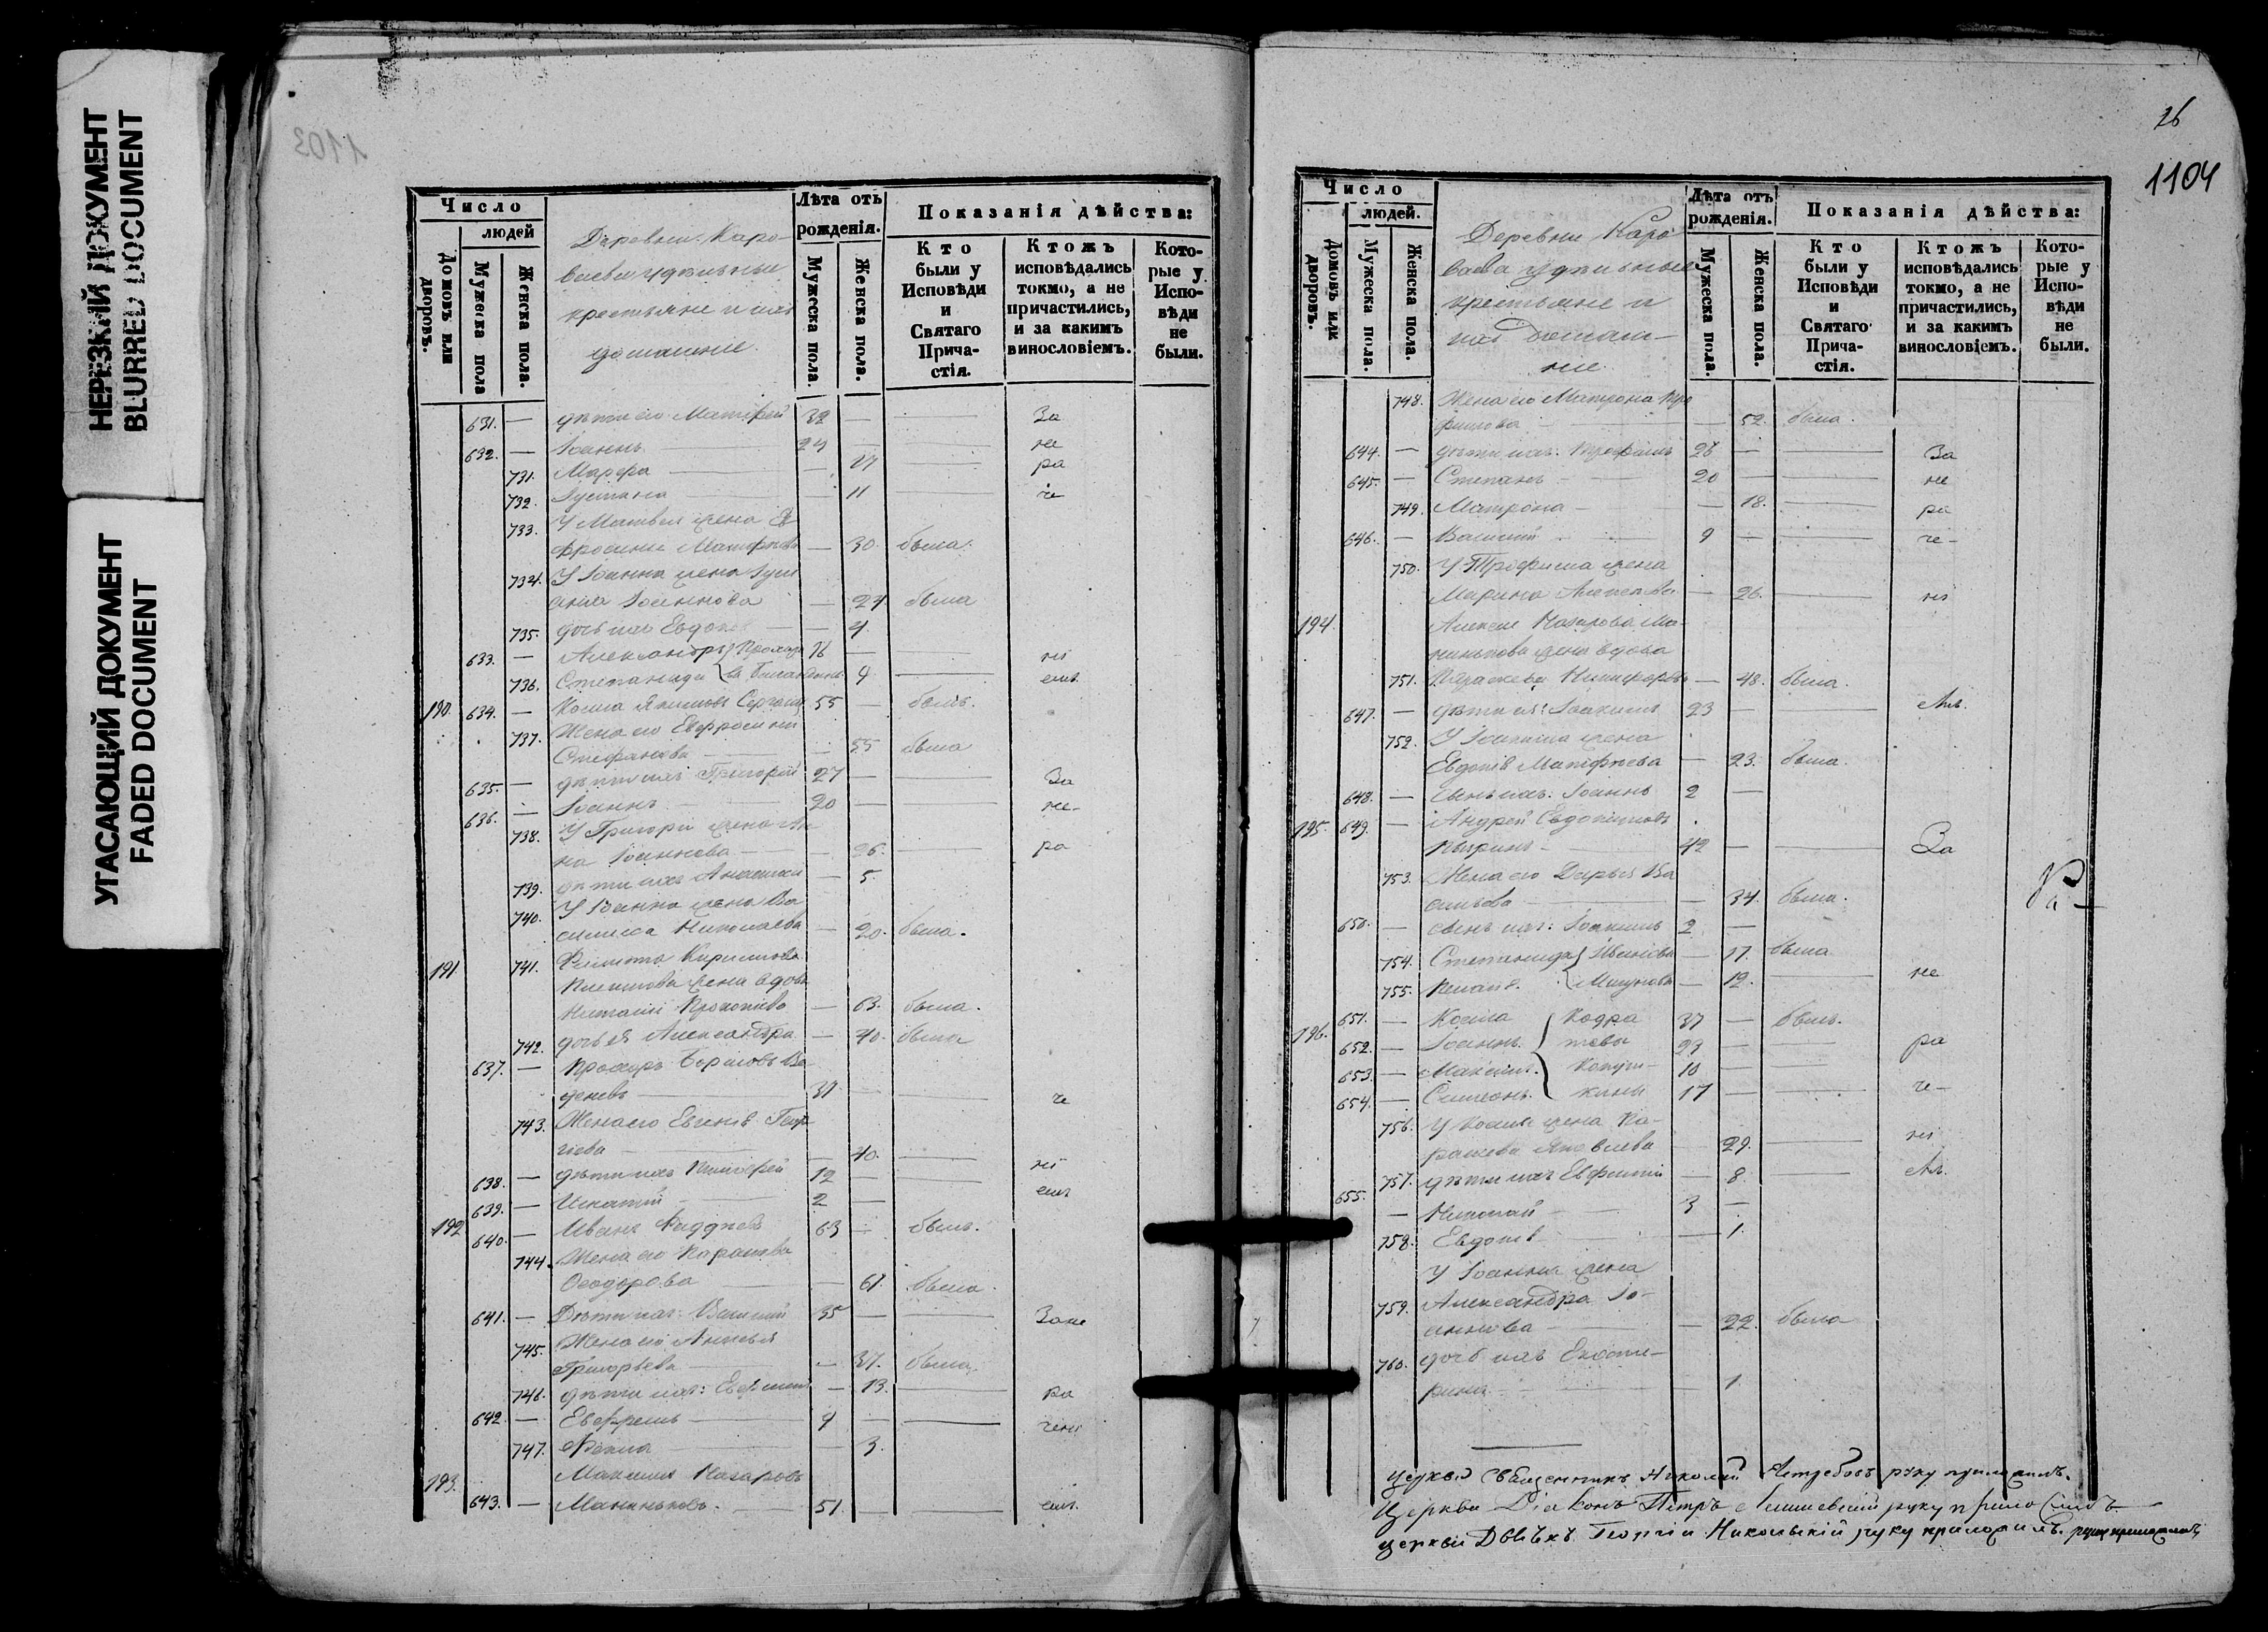 НЕРЕЗКИЙ ДОКУМЕНТ
BLURRED DOCUMENT
УГАСАЮЩИЙ ДОКУМЕНТ
FADED DOCUMENT
1103
Число
людей
Домовъ или дворовъ.
Мужеска пола
Женска пола.
Деревни Каро-
ваева удѣльные
крестьяне и ихъ
домашние.
Лѣта отъ рожденія.
Мужеска пола.
Женска пола.
Показанія дѣйства:
Кто были у Исповѣди и Святаго Прича-стія.
Ктожъ исповѣдались токмо, а не причастились, и за какимъ винословіемъ.
Кото-рые у Испо-вѣди не были.
631. — дѣти его Матфей 32 — За
632. — Іоаннъ 24 — не
731. Марфа — 17 ра
732. Іустина — 11 че
733. У Матвея жена Ев
фросинія Матфѣева — 30. была.
734. У Іоанна жена Іули
анія Іоаннова — 24 была
735. дочь ихъ Евдокія — 4.
633. — Александръ 16 — ні
736. Степанида 9 емъ
190. 634. — Косма Якимовъ 55 — былъ.
737. Жена его Евфросинія
Стефанова — 55 была
635. — дѣти ихъ Григорій 27 — За
636. — Іоаннъ 20 — не-
738. У Григорія жена Ан
на Іоаннова — 26. ра
739. дѣти ихъ Анастасія — 5.
740. У Іоанна жена Ва
силиса Николаева — 20. была.
191. 741. Филиппа Кирилова
жена вдова
Наталія Прокопіева — 63. была.
742. дочь ея Александра — 40. была
637. — Прохоръ Борисовъ Ве
деневъ 37 — че
743. Жена его Евгенія Геор
гіева — 40.
638. — дѣти ихъ Тимофей 12 — ні
639. — Игнатій 2 — емъ
192 640. — Иванъ Фаддѣевъ 63 — былъ.
744. Жена его
Ѳеодорова — 61. была.
641. — Дѣти ихъ: Василій 35 — Зане
745. Жена его Анисья
Григорьева — 37. была.
746. дѣти ихъ: Евфимія — 13. ра
642. — Евфремъ 9 — чені
747. Ѳекла — 3.
193. Максимъ Назаровъ
643. — Мананьковъ. 51. — емъ.
26
1104
Число
людей.
Домовъ или дворовъ.
Мужеска пола.
Женска пола.
Деревни Каро
ваева удѣльные
крестьяне и
ихъ домаш-
ніе.
Лѣта отъ рожденія.
Мужеска пола.
Женска пола.
Показанія дѣйства:
Кто были у Исповѣди и Святаго Прича-стія.
Ктожъ исповѣдались токмо, а не причастились, и за какимъ винословіемъ.
Кото-рые у Испо-вѣди не были.
748. Жена его Матрона Тро
фимова — 52. была.
644. — дѣти ихъ: Трофимъ 26 — За
645. — Степанъ 20 — не
749. Матрона — 18. ра
646. — Василій 9 — че-
750. У Трофима жена
Марина Алексѣева — 26. ні
194. Алексея Назарова Ма-
нанькова жена вдова
751. Параскева Никифорова — 48. была.
647. — дѣти ея: Іоакимъ 23 — емъ.
752. У Іоакима жена
Евдокія Матфѣева — 23. была.
648. — сынъ ихъ: Іоаннъ 2 —
195. 649. — Андрей Евдокимовъ
42 — За
753. Жена его Дарья Ва
сильева — 34. была.
650. — сынъ ихъ: Іоакимъ 2 —
754. Степанида Иванова — 17 была
755. — 12. не
196. 651. — Косма Кодра 37 — былъ.
652. — Іоаннъ. тевы 23 — ра
653. — Максимъ. 10 —
654. — Симеонъ. 17 — че-
756. У Космы жена
Яковлева — 29. ні
757. дѣти ихъ Евфимія — 8. емъ.
655. — Николай 3 —
758. Евдокія — 1.
У Іоанна жена
759. Александра Іо-
аннова — 22. была
760. дочь ихъ Екате-
рина — 1.
церкви Священникъ Николай Ястребовъ руку приложилъ.
Церкви Діаконъ Петръ руку приложилъ
церкви Дьячекъ Георгій Никольскій руку приложилъ. руку приложилъ